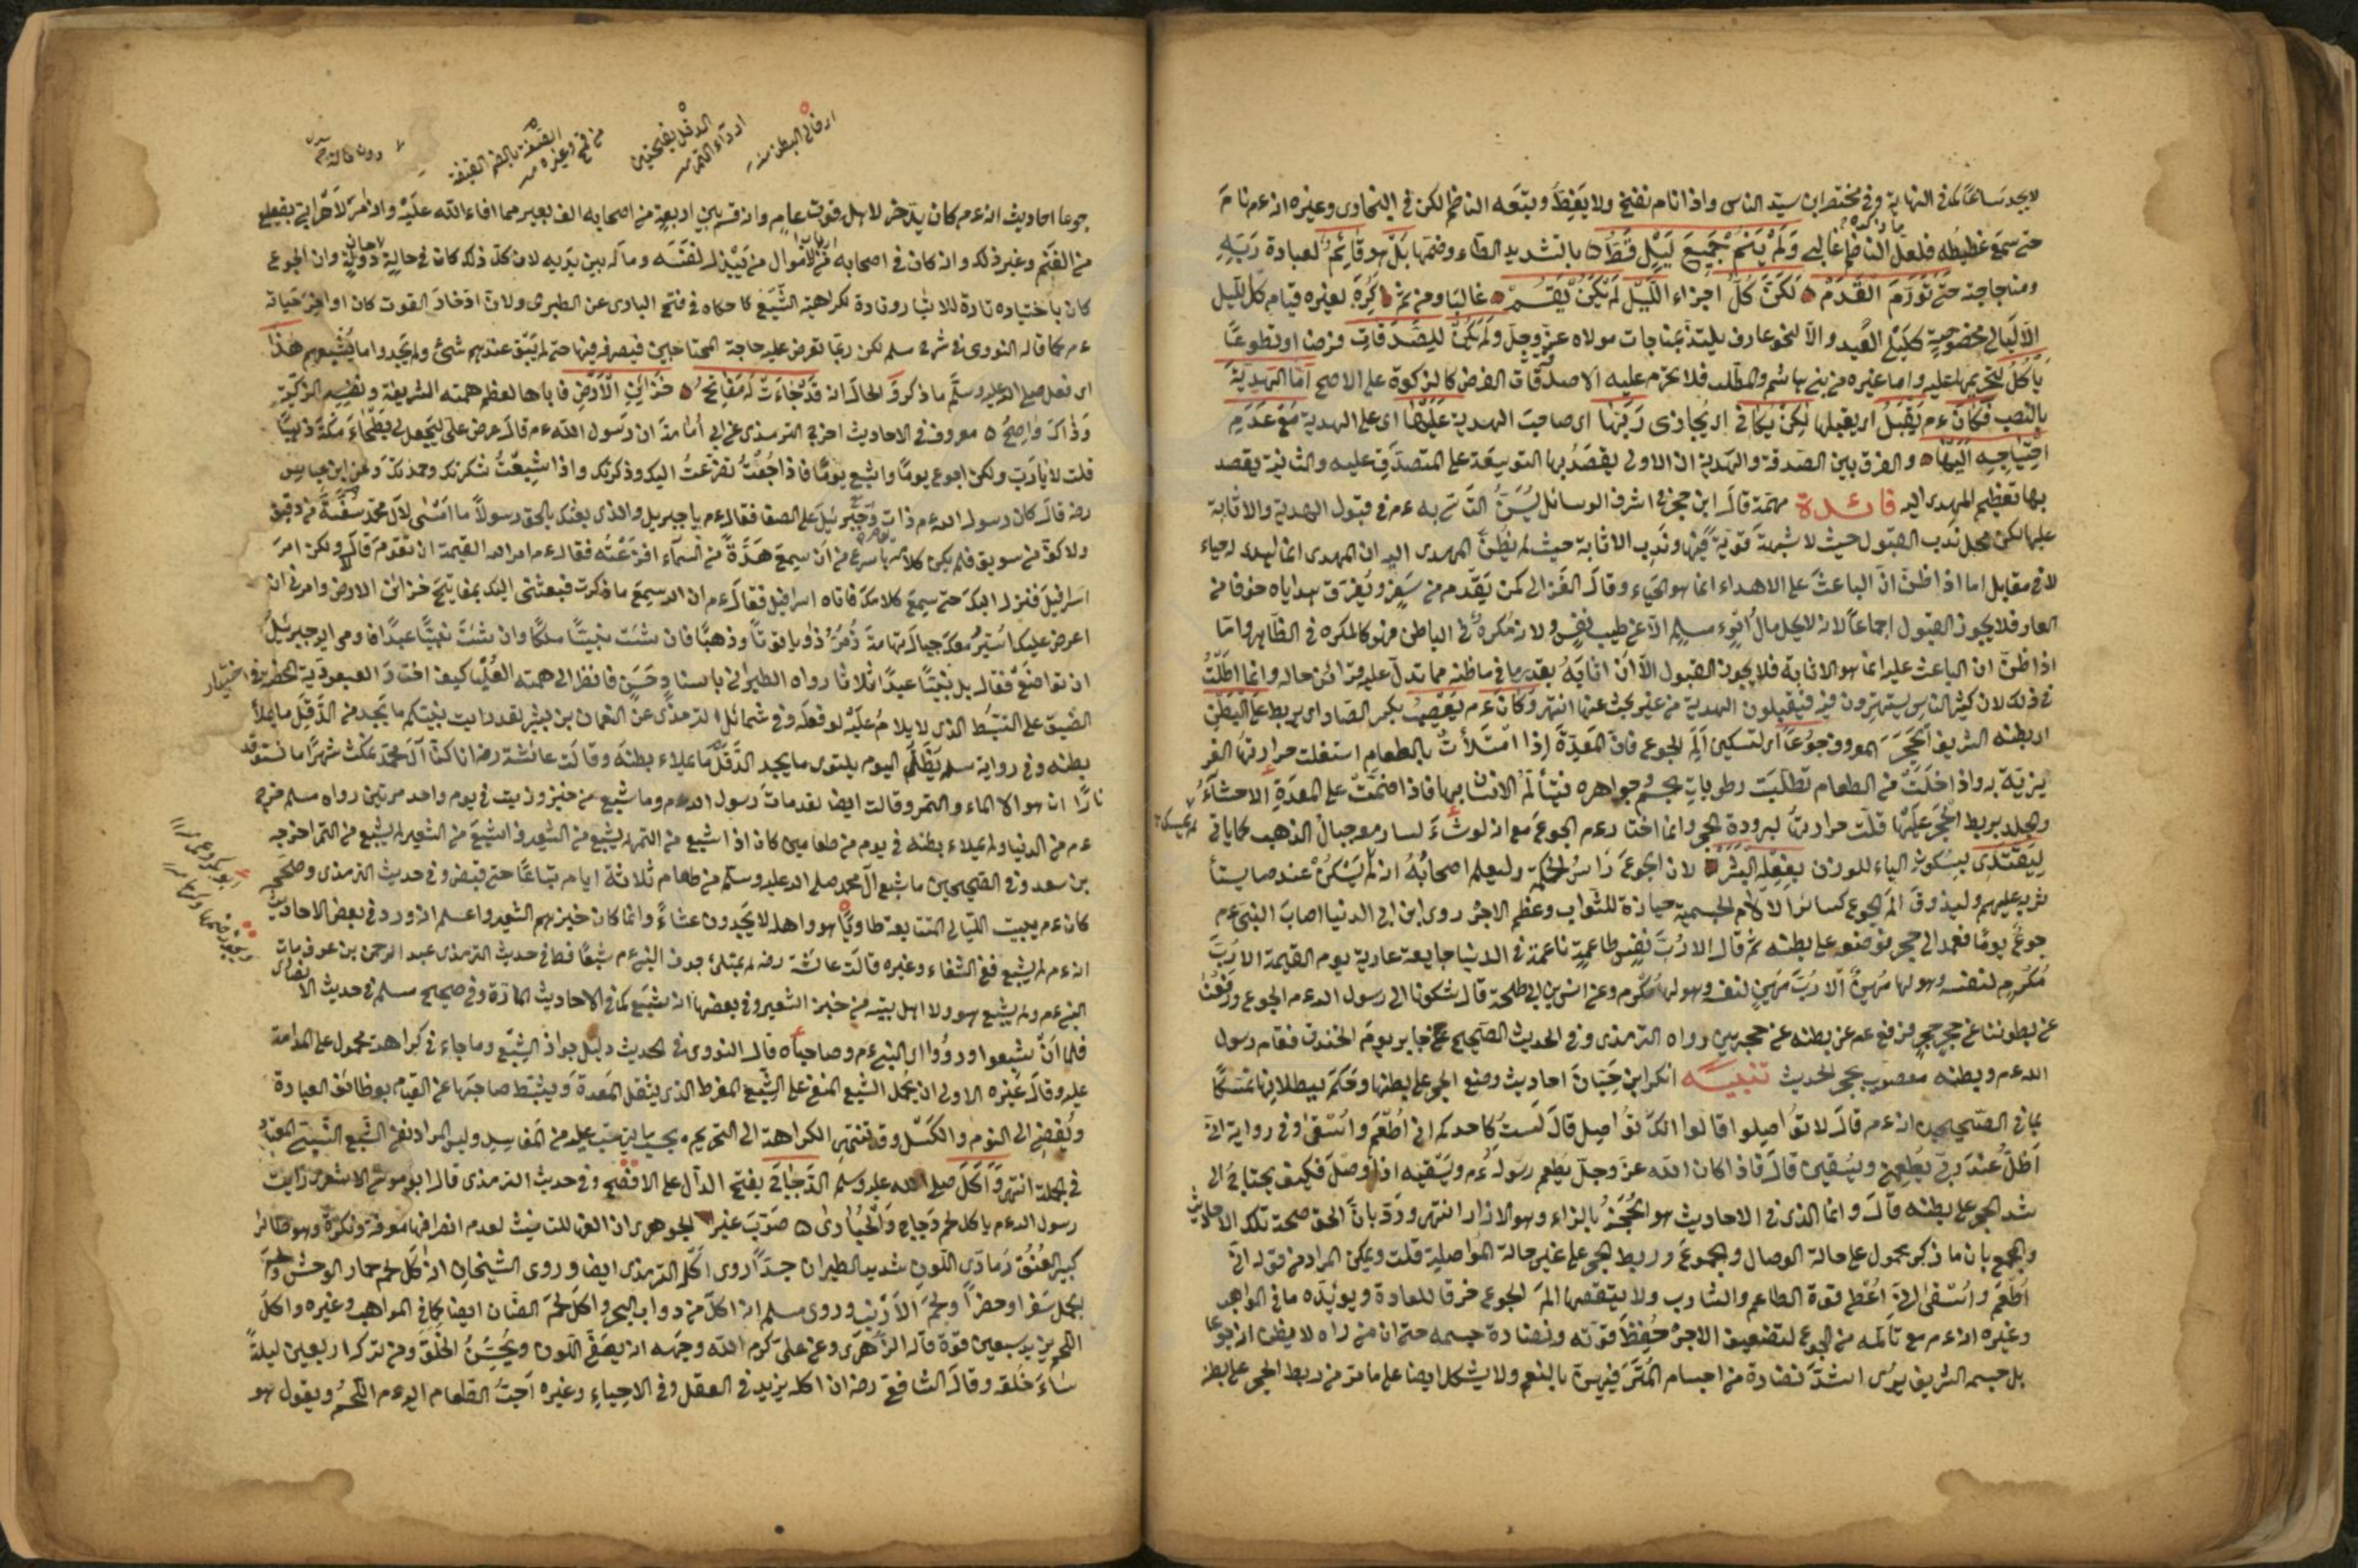 لا يجد ساعًا كذا في النهاية وفي مختصر ابن سيّد الناس واذا نام نفخ ولا يَغِطُّ وتبعَه الناظم لكن في البخاري وغيره انه عم نام
حتى سمع غطيطه فلعل الناظم غالبه وَلَمْ يَنَمْ جَمِيعَ لَيْلٍ قَطُّ بالتشديد الطاء وضمها بَلْ هو قَائِمٌ لعبادة رَبِّهِ
ومناجاته حَتَّى تَوَرَّمَ القَدَمْ لَكِنَّ كُلَّ اجزاء اللَّيْلِ لَمْ يَكُنْ يَقُمْ غالبًا ومن ثَمَّ كُرِهَ لغيره قيام كل الليل
الاّ ليالي مخصوصة كليلة العيد والا لنحو عارف يلتذ بمناجات مولاه عزّ وجلّ وَلَمْ يَكُنْ لِلصَّدَقَاتِ فرض او تطوعًا
يَأْكُلُ لتحريمها عليه واما غيره من بني هاشم والمطلب فلا يحرم عليه الا صدقات الفرض كالزكوة على الاصح امّا الهديّة
بالنصب فَكَانَ عم يَقْبَلُ اي يقبلها لكِنْ يُكَافِي اي يُجازى رَبَّهَا اى صاحبَ الهدية عَلَيْهَا اى على الهدية مَعَ عَدَمِ
احْتِيَاجِهِ اِلَيْهَا والفرق بين الصّدقة والهديّة ان الاولى يقصَدُ بها التوسِعَة على المتصدَّق عليه والثانية يقصد
بها تعظيم المهدى اليه فائدة مهمّة قال ابن حجر في اشرف الوسائل يُسَنُّ التأسّي به عم في قبول الهدية والاثابة
عليها لكن محل ندب القبول حيث لا شبهة قوية فيها وندب الاثابة حيث لم يُظَنَّ المهدى اليه ان المهدى انما اهداه له حياء
لا في مقابل اما اذا ظنّ انّ الباعثَ على الاهداء انما هو الحياء وقال الغزالي كمن يَقْدَم من سَفَرٍ ويُفَرِّق هداياه خوفا من
العار فلا يجوز القبول اجماعًا لانه لا يحل مال امرئٍ مسلمٍ الاّ عن طيب نفس ولانه مُكْرهٌ في الباطن فهو كالمكره في الظّاهر واما
اذا ظنّ ان الباعث عليه انما هو الاثابة فلا يجوز القبول الاّ ان اثابَهُ بقدر ما في ما ظنّه مما تدلّ عليه قرائن حاله وانما اطَلْتُ
في ذلك لان كثير الناس يستهترون فيه فيقبلون الهدية من غير بحث عنها انتهى وَكَانَ عم يَعْصِبُ بكسر الصّاد اى يربط عَلَى البَطْنِ
اى بطنه الشريف الحَجَرَ المعروف جوعًا اى لتسكين ألَمِ الجوع فانّ المَعِدَةَ إذا امْتَلَأَتْ بالطعام استغلت حرارتها الغريزيّة
به واذا خلَتْ من الطعام تطلّبَت رطوباتِ الجسم وجواهره فيتألّم الانسان بها فاذا انضمّت على المَعِدَةِ الاحشاءُ
والجلد بربط الحجر عليها قلّت حرارتها لبرودة الحجر وانما اختار عم الجوعَ مع انه لو شاءَ لسار معه جبال الذهب كما ياتي
لِيَقْتَدِي بسكون الياء للوزن بِفِعْلِهِ البَشَرْ لان الجوعَ رأسُ الحِكَمِ وليعلم اصحابُهُ انه لم يَسْكُنْ عنده ما يستأثر به
عليهم وليذوق المَ الجوع كسائر الالام الجسمية حيازةً للثواب وعظم الاجر روى ابن ابي الدنيا اصابَ النبي عم
جوعٌ يومًا فعمد الى حجر فوضعه على بطنه ثم قال الا رُبَّ نفسٍ طاعمةٍ ناعمة في الدنيا جايعة عارية يوم القيمة الا رُبَّ
مُكْرِمٍ لنفسه وهو لها مُهِينٌ ألا رُبَّ مُهِينٍ لنفسه وهو لها مُكْرِم وعن انس بن ابي طلحة قال شكونا الى رسول الله عم الجوعَ ورفعنا
عن بطوننا عن حجرٍ حجرٍ فرفع عم عن بطنه عن حجرين رواه الترمذى وفي الحديث الصّحيح عن جابر يومَ الخندق فقام رسول
الله عم وبطنه معصوب بحجر الحديث تنبيه انكر ابن حِبّانَ احاديثَ وضع الحجر على بطنه وحَكَمَ ببطلانها تمسّكًا
بما في الصّحيحين انه عم قال لا تواصِلوا قالوا انك تواصل قال لست كأحدكم اني اُطْعَم واُسْقى وفي رواية انى
اَظَلُّ عند ربّي يطعمنى ويسقينى قال فاذا كان الله عزّ وجلّ يُطعِم رسوله عم ويَسْقيه اذا وصل فكيف يحتاج الى
شد الحجر على بطنه قال وانما الذى في الاحاديث هو الحُجَزُ بالزاء وهو الازار انتهى وردّ بانّ الحق صحة تلك الاحاديث
والجمع بان ما ذكر محمول على حالة الوصال والجموع وربط الحجر على غير حالة المواصلة قلت ويمكن المراد من قوله انى
اُطعَم واُسقى انى اُعطى قوة الطاعم والشارب ولا ينقصها المَ الجوع خرقا للعادة ويؤيّده ما في المواهب
وغيره انه عم مع تألّمه من الجوع لتضعيف الاجر حُفِظَ قوّته ونضارة جسمه حتى ان من راه لا يظن انه جوعا
بل جسمه الشريف يُرى اشدَّ نضارة من اجسام المُتَرَفِّهين بالنعم ولا يشكل ايضا على ما مر من ربط الحجر على بطنه
ارفالي البطن منه
الدقل بفتحتين
اردآء التمر
القبضة بالضم
من قمح وغيره
جوعا احاديث انه عم كان يدّخر لاهل قوت عام وانه قسم بين اربعة من اصحابه الف بعير مما افاء الله عليه وانه امر لأعرابيّ بقطيع
من الغنم وغير ذلك وانه كان في اصحابه من الاموال من يبذل لنفسه وماله بين يديه لان كل ذلك كان في حالة دون حالة وان الجوع
كان باختياره تارة للايثار وتارة لكراهية الشِّبَع كما حكاه في فتح البارى عن الطبرى ولانّ ادخارَ القوت كان اواخرَ حَياته
عم كما قاله النووى في شرح مسلم لكن ربما تعرض عليه حاجة المحتاجين فيصرفه فيها حتى لم يَبْق عندهم شئ ولم يجدوا ما يُشْبِعهم هَذَا
اى فعل صلى الله عليه وسلم ما ذكر وَ الحالَ انه قَدْ جَاءَتْ لَهُ مَفَاتِحُ خَزَائِنِ الأَرْضِ فاباها لعظم همته الشريفة ونفسه الزكيّة
وَذَاكَ وَاضِحُ معروف في الاحاديث اخرج الترمذى عن ابي أمامة ان رسول الله عم قال عرض علىّ ليجعل لي بَطْحاءَ مكة ذهبًا
قلت لا يا ربّ ولكن اجوع يومًا واشبع يومًا فاذا جُعْتُ تضرّعتُ اليك وذكرتك واذا شَبِعْتُ شكرتك وحمدتك وعن ابن عباس
رضه قال كان رسول الله عم ذات يوم وجبرئيل على الصفا فقال عم يا جبريل والذى بعثك بالحق رسولاً ما امْسٰى لآل محمد سَفّةٌ من دقيق
ولا كفّ من سويق فلم يكن كلامه باسرع من ان سمع هَدَّةً من السمآء افزعَتْه فقال عم امر الله القيمة ان تقوم قال لا ولكن امرَ
اسرافيل فنزل اليك حتى سمع كلامك فاتاه اسرافيل فقال عم ان الله سمع ما ذكرت فبعثنى اليك بمفاتيح خزائن الارض وامرنى ان
اعرض عليك اُسَيِّرُ معكَ جبال تهامة زُمُرُّدًا وياقوتًا وذهبًا فان شئت نبيًّا ملكًا وان شئتَ نبيًّا عبدًا فاومى اليه جبرئيلُ
ان تواضَعْ فقال بل نبيًّا عبدًا ثلاثا رواه الطبرانى باسناد حَسَنٍ فانظر الى همته العليّا كيف اختار العبوديّة المحضة في اختيار
الضيق على التبسط الذى لا يلام عليه لو فعله وفي شمائل الترمذى عن النعمان بن بشير لقد رايت نبيّكم ما يجد من الدقل ما يملأ
بطنه وفي رواية مسلم يظل اليوم يلتوى ما يجد الدَّقَل ما يملاء بطنه وقالت عائشة رضه انا كنا آلَ محمد نمكث شهرًا ما نستوقد
نارًا ان هو الا الماء والتمر وقالت ايضا لقد مات رسول الله عم وما شبع من خبز وزيت في يوم واحد مرتين رواه مسلم خرج
عم من الدنيا ولم يملاء بطنه في يوم من طعامين كان اذا شبع من التمر لم يشبع من الشعير واذا شبع من الشعير لم يشبع من التمر اخرجه
بن سعد وفي الصحيحين ما شبع آل محمد صلى الله عليه وسلم من طعام ثلاثة ايام تِباعًا حتى قبض وفي حديث الترمذى وصححه
كان عم يبيت الليالى المتتابعة طاويًا هو واهله لا يَجِدون عشاءً وانما كان خبزهم الشعير واعلم انه ورد في بعض الاحاديث
انه عم لم يشبع ففي الشفاء وغيره قالت عائشة رضه لم يمتلئ جوف النبى عم شبعًا قط وفي حديث الترمذى عبد الرحمن بن عوف مات
النبى عم ولم يشبع هو ولا اهل بيته من خبز الشعير وفي بعضها انه شبع كما في الاحاديث المارّة وفي صحيح مسلم في حديث الانصارى
فلما انْ شبعوا ورووا اى النبى عم وصاحباه قال النووى في الحديث دليل جواز الشبع وما جاء في كراهته محمول على المداومة
عليه وقال غيره الاولى ان يُحمل الشبع المنفى على الشبع المفرط الذى يثقل المَعِدة ويثبّط صاحبها عن القيام بوظائف العبادة
ويُفضى الى النوم والكَسَل وقد تنتهى الكراهة الى التحريم بحسب ما يترتب عليه من المَفاسِد وليس المراد نفى الشبع النسبى المعتاد
في الجملة انتهى وَأَكَلَ صلى الله عليه وسلم الدَّجاج بفتح الدال على الافصح وفي حديث الترمذى قال ابو موسى الاشعرى رايت
رسول الله عم ياكل لحم دجاج وَالحُبَارَى صَوَّبَ غير الجوهرى ان الفها للتانيث لعدم انصرافها معرفة ونكرة وهو طائر
كبير العُنُق رماديّ اللّون شديد الطيران جدًّا روى اكله الترمذى ايضا وروى الشيخان انه اكل لحم حمار الوحش ولحم
الجمل سَفرًا وحضرًا ولحمَ الارنب وروى مسلم انه اكل من دواب البحر واكل لحمَ الضأن ايضا كما في المواهب وغيره واكلُ
اللحم يزيد سبعين قوة قاله الزهرى وعن على كرم الله وجهه انه يُصَفّى اللون ويُحَسِّنُ الخُلُق ومن تركه اربعين ليلةً
سَاءَ خُلُقه وقال الشافعى رضه ان اكله يزيد في العقل وفي الاحياء وغيره احَبُّ الطعام اليه عم اللحمُ ويقول هو